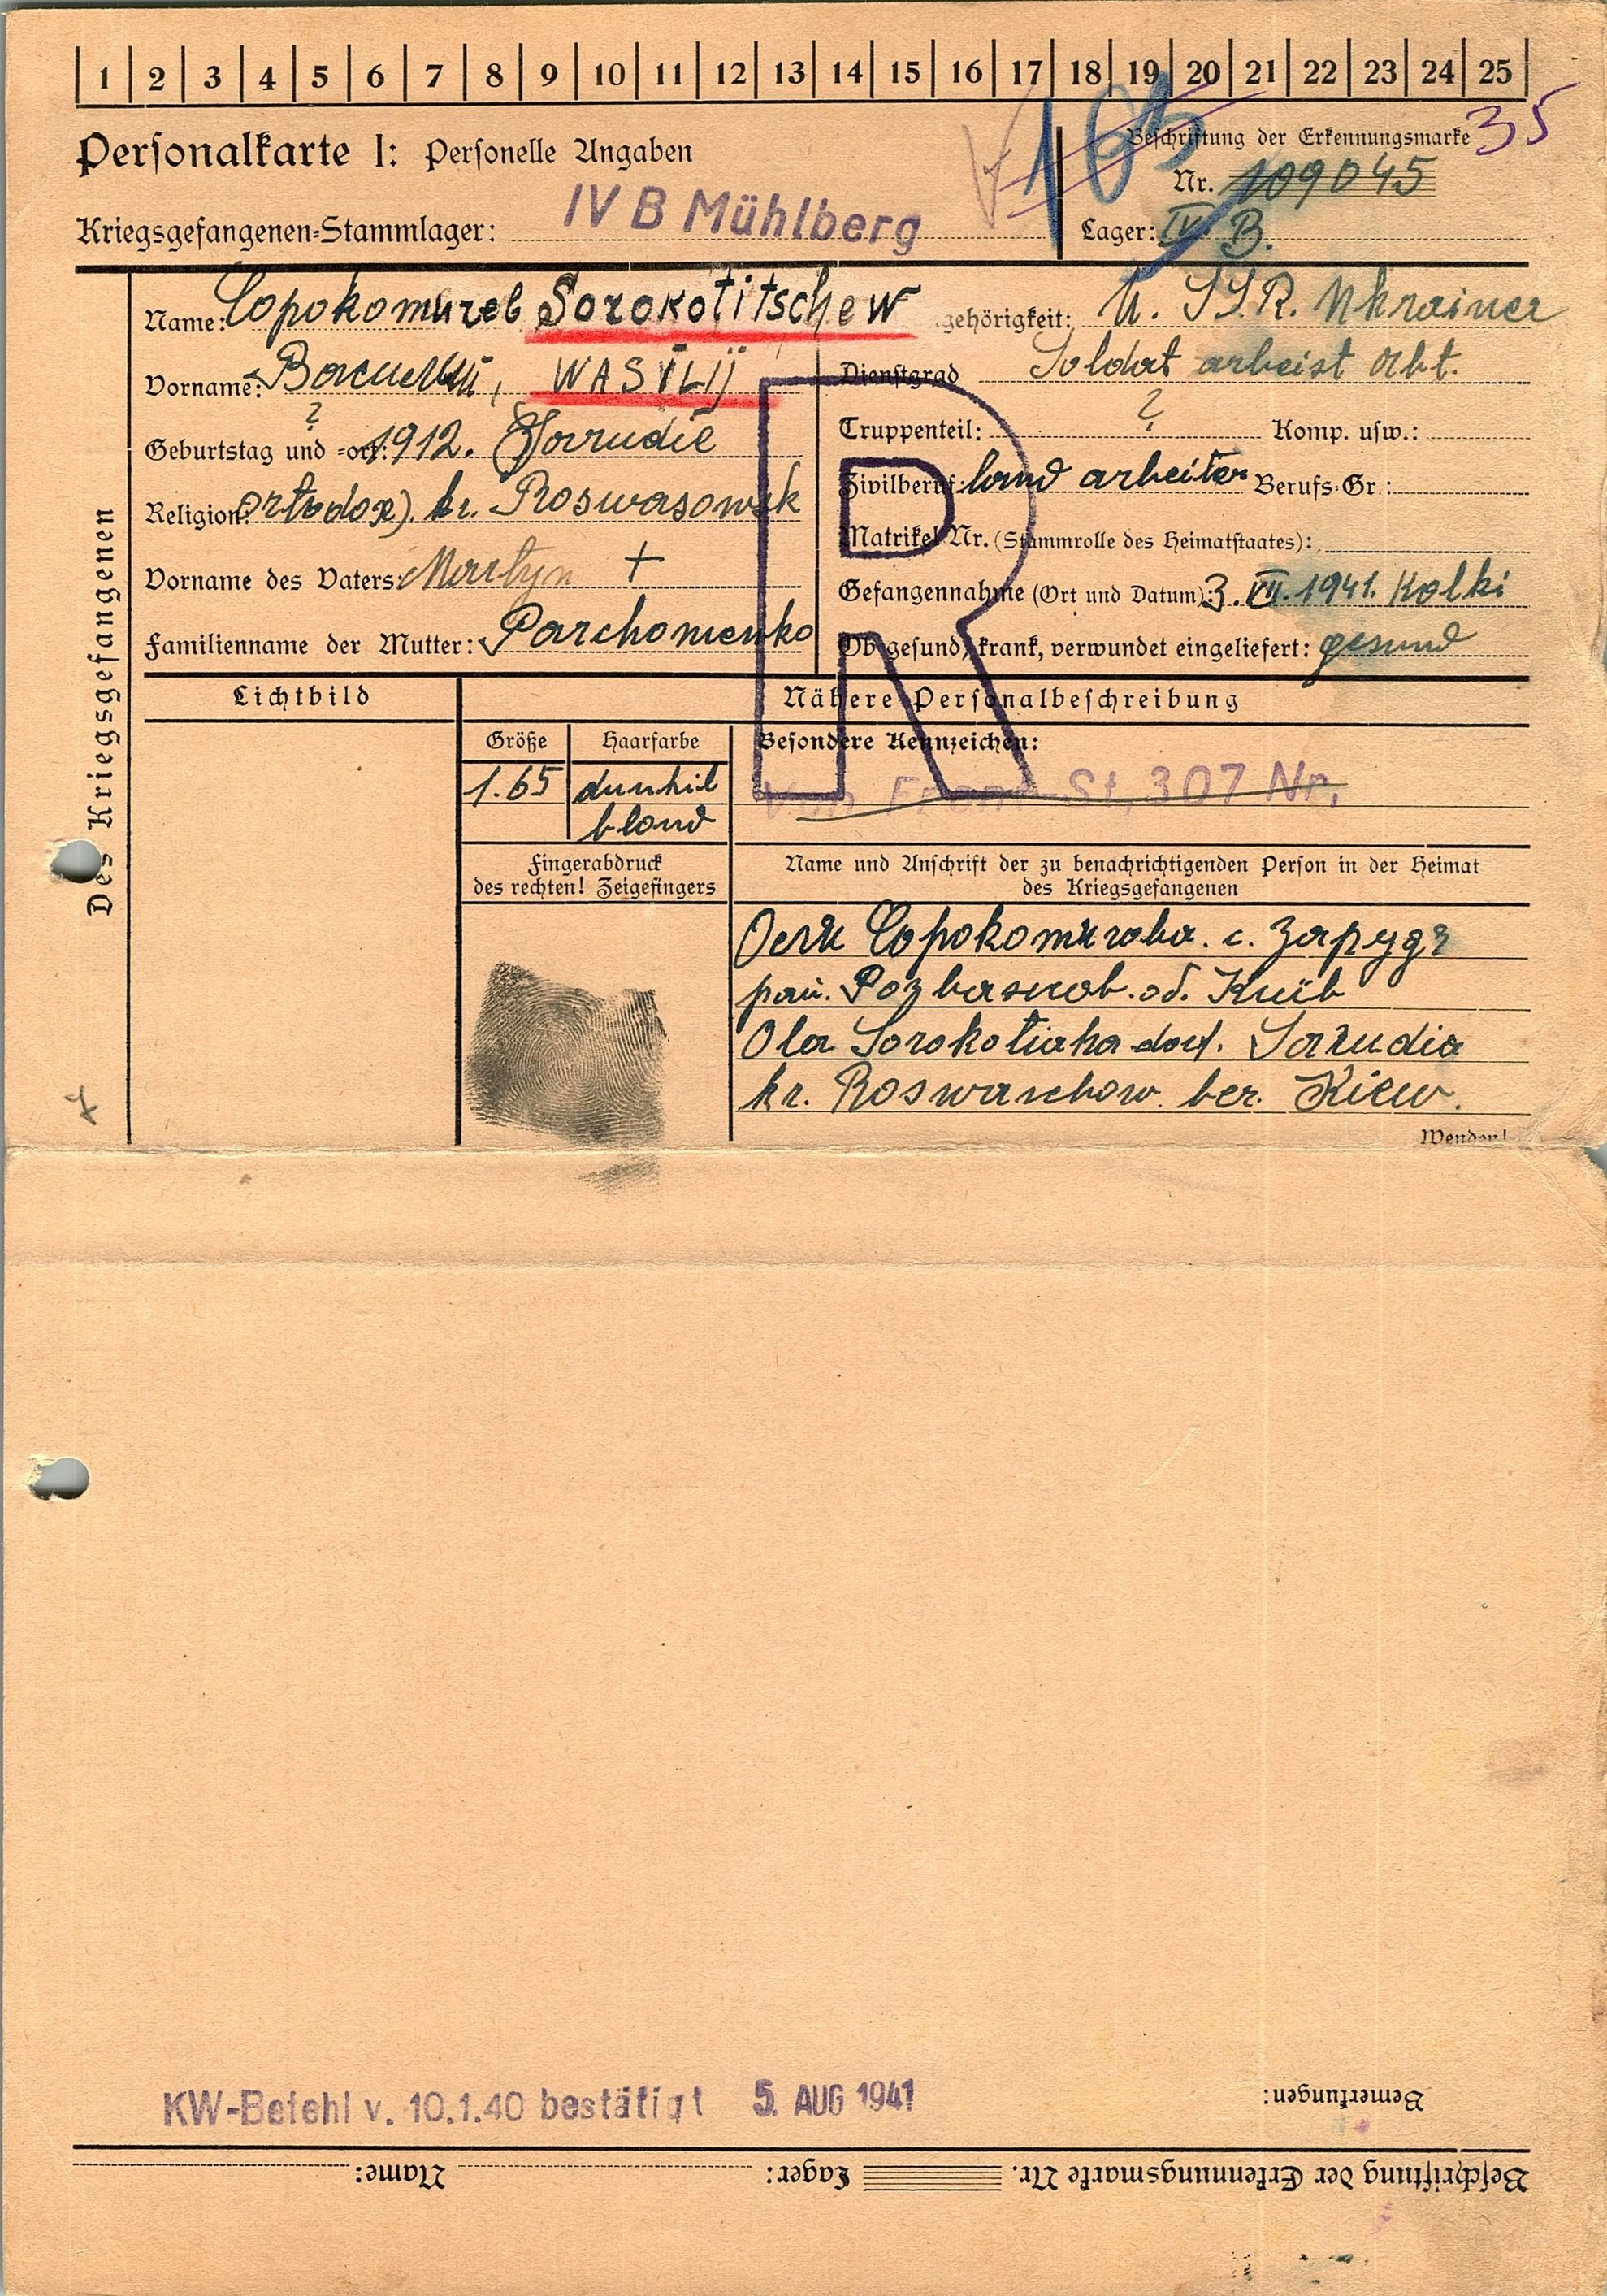 1 2 3 4 5 6 7 8 9 10 11 12 13 14 15 16 17 18 19 20 21 22 23 24 25
Personalkarte I: Personelle Angaben
165
35
Beschriftung der Erkennungsmarke
Nr. 109045
Kriegsgefangenen-Stammlager: IV B Mühlberg
Lager: IV B.
Des Kriegsgefangenen
Name: Сорокотічев Sorokotitschew
Vorname: Василій, WASILIJ
Geburtstag und -ort: ? 1912. Sarudie
Religion: ortodox). kr. Roswasowsk
Vorname des Vaters: Martyn +
Familienname der Mutter: Parchomenko
gehörigkeit: U. SSR. Ukrainer
Dienstgrad Soldat arbeist Abt.
Truppenteil: ? Komp. usw.:
Zivilberuf: land arbeiter Berufs-Gr.:
Matrikel Nr. (Stammrolle des Heimatstaates):
Gefangennahme (Ort und Datum): 3. VII. 1941. Kolki
Ob gesund, krank, verwundet eingeliefert: gesund
R
Lichtbild
Nähere Personalbeschreibung
Größe
Haarfarbe
Besondere Kennzeichen:
1.65
dunkil
blond
Von Front-St. 307 Nr.
Fingerabdruck
des rechten! Zeigefingers
Name und Anschrift der zu benachrichtigenden Person in der Heimat
des Kriegsgefangenen
с.
об. Київ
Ola dorf. Sarudia
kr. Roswaschow ber. Kiew.
Wenden!
KW-Befehl v. 10.1.40 bestätigt 5. AUG 1941
Bemerkungen:
Beschriftung der Erkennungsmarke Nr. Lager: Name: